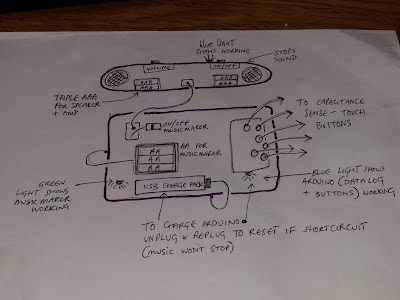 blue light
shows working
STOPS
SOUND
VOLUME
ON/OFF
AAA
AAA
AAA
AAA
TRIPLE AAA
FOR SPEAKER
+ AMP
ON/OFF
MUSICMAKER
TO CAPACITANCE
SENSE - TOUCH
BUTTONS
AA
AA
AA
AA FOR
MUSICMAKER
GREEN
LIGHT SHOWS
MUSIC MAKER
WORKING
USB CHARGE PACK
BLUE LIGHT SHOWS
ARDUINO (DATALOG
+ BUTTONS) WORKING
TO CHARGE ARDUINO
UNPLUG & REPLUG TO RESET IF SHORTCIRCUIT
(MUSIC WON'T STOP)